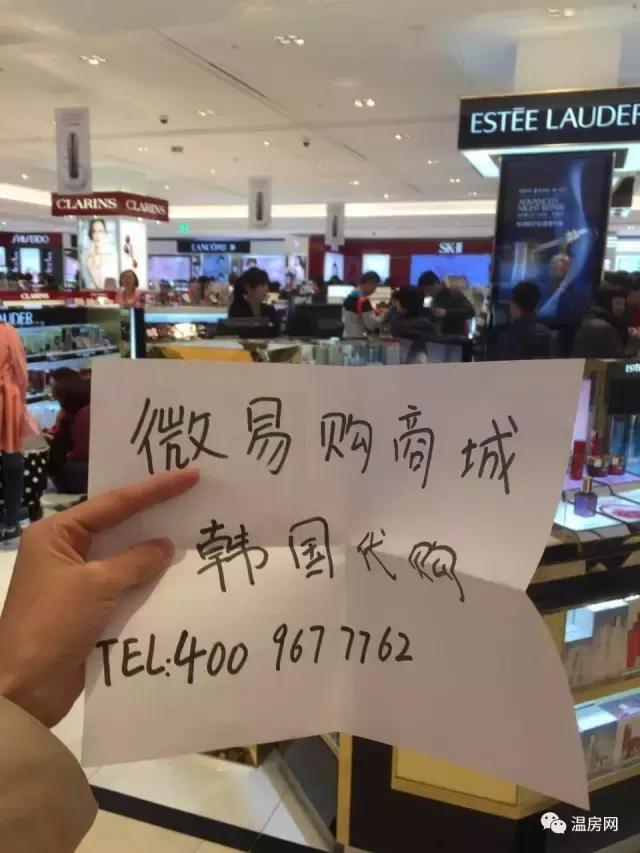 ESTĒE LAUDER
CLARINS CLARINS
SHISEIDO
LANCÔME
SK-II
ADVANCED
NIGHT REPAIR
CLARINS
AUDER
微易购商城
韩国代购
TEL:400 967 7762
温房网